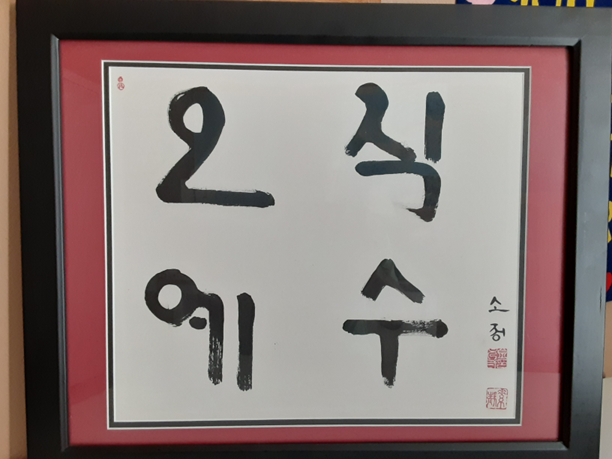 오직
예수
소정